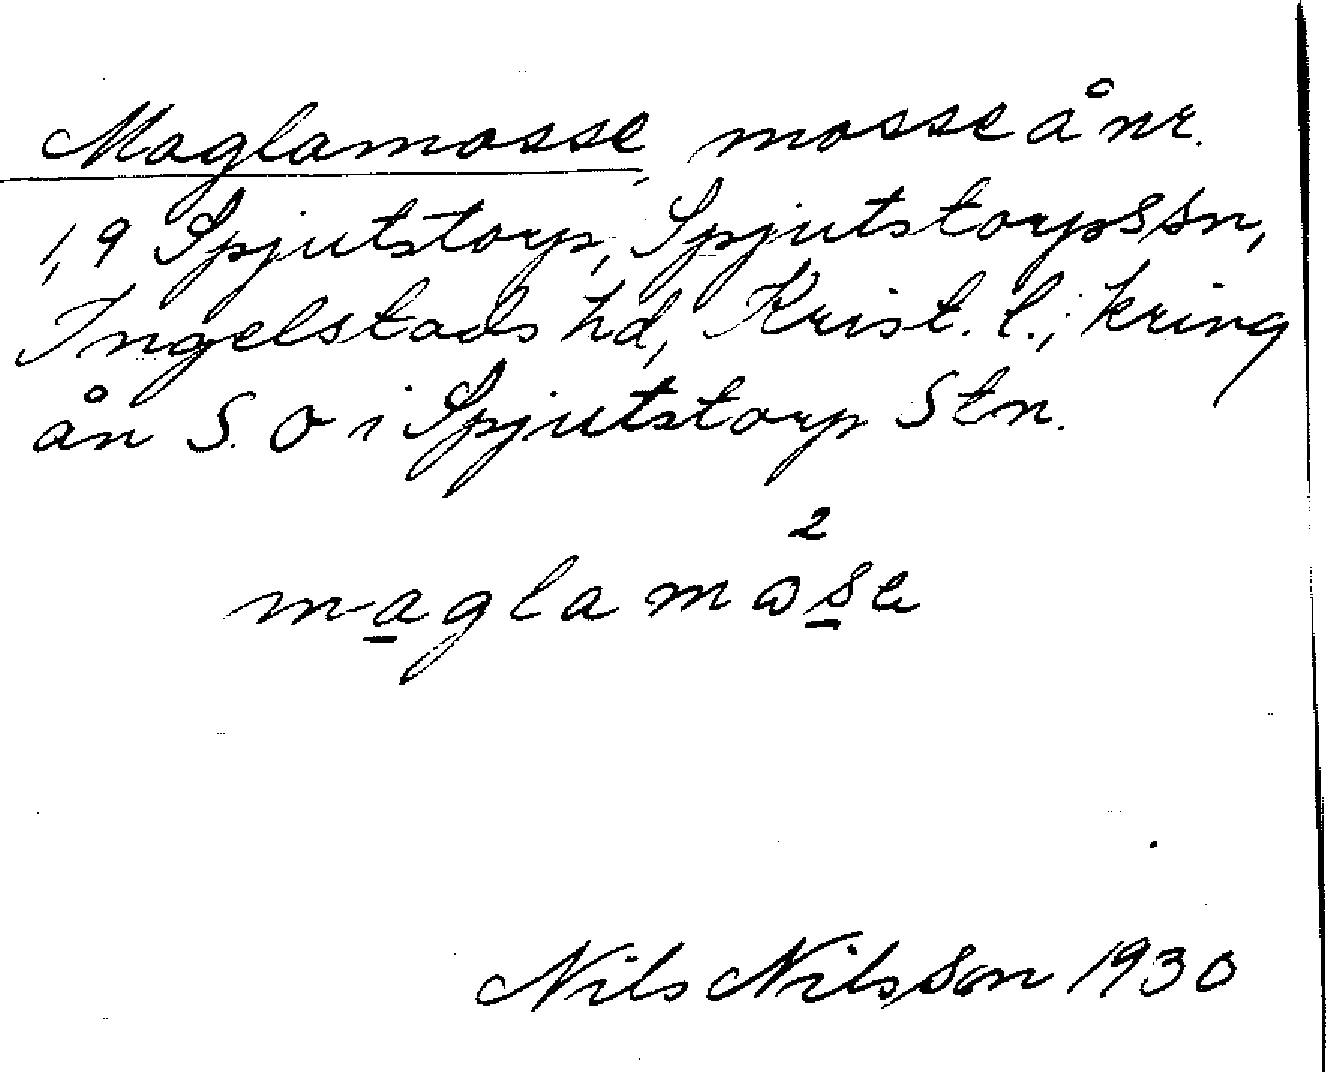 Maglamosse, mosse å nr.
1,9 Spjutstorp, Spjutstorps sn,
Ingelstads hd, Krist. l.; kring
ån S. O i Spjutstorp Stn.
2
maglamɷsa
Nils Nilsson 1930